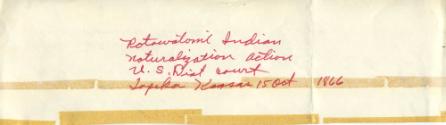 Potowatomi Indian
naturalization action
U.S. Dist court
Topeka Kansas 15 Oct 1866